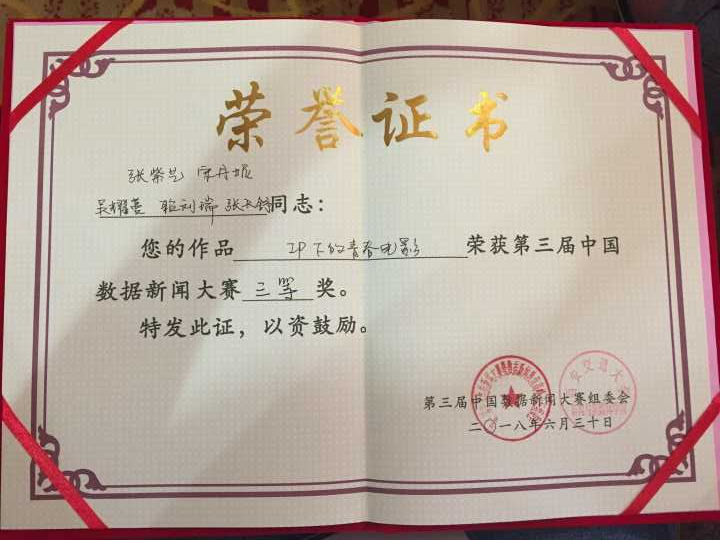 荣誉证书
张紫艺
同志：
您的作品 IP下的青春电影 荣获第三届中国
数据新闻大赛 三等 奖。
特发此证，以资鼓励。
第三届中国数据新闻大赛组委会
二〇一八年六月三十日
西安交通大学